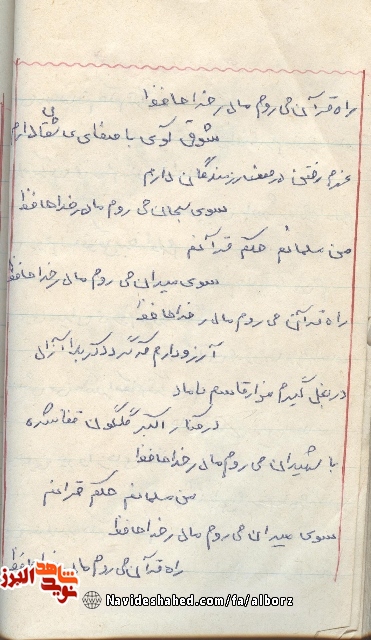 راه قرآن می روم مادر خداحافظ
شوق کوی با صفای بی دارم
عزم رفتن در صف رزمندگان دارم
سوی سبحان می روم مادر خداحافظ
من مسلمانم حکم قرآنم
سوی میدان می روم مادر خداحافظ
راه قرآن می روم مادر خداحافظ
آرزو دارم که گردد کربلا آزاد
در بغل گیرم مزار قاسم داماد
در کنار اکبر گلگون قفا شده
با شهیدان می روم مادر خداحافظ
من مسلمانم حکم قرآنم
سوی میدان می روم مادر خداحافظ
راه قرآن می روم مادر خداحافظ
نوید شاهد البرز
Navideshahed.com/fa/alborz